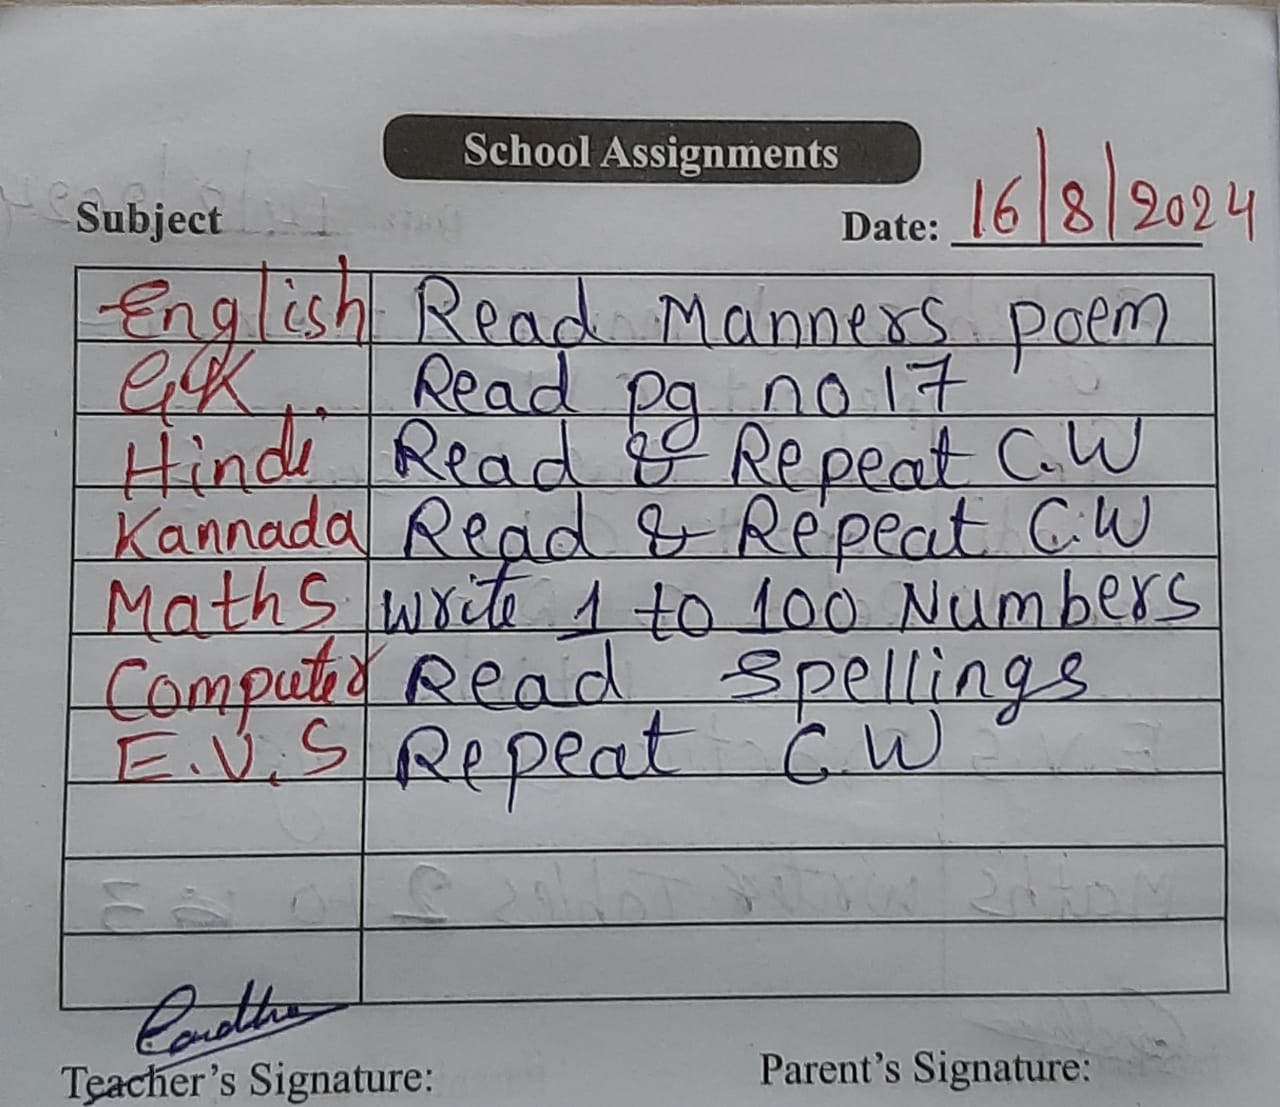 School Assignments
Subject Date: 16/8/2024
English Read Manners poem
G.K Read pg no 17
Hindi Read & Repeat C.W
Kannada Read & Repeat C.W
Maths Write 1 to 100 Numbers
Computer Read Spellings
E.V.S Repeat C.W
Teacher's Signature: Parent's Signature: